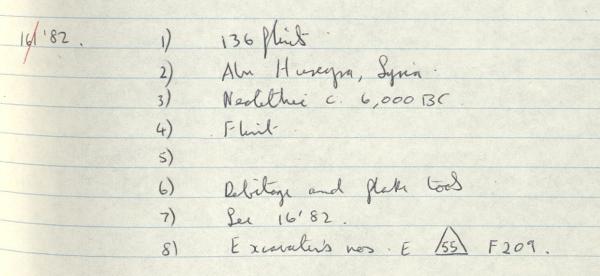 16/'82. 1) 136 flint
2) Abu Hureyra, Syria.
3) Neolithic c. 6,000 BC
4) Flint.
5)
6) Debitage and flake tools
7) See 16'82.
8) Excavator's nos. E 55 F209.